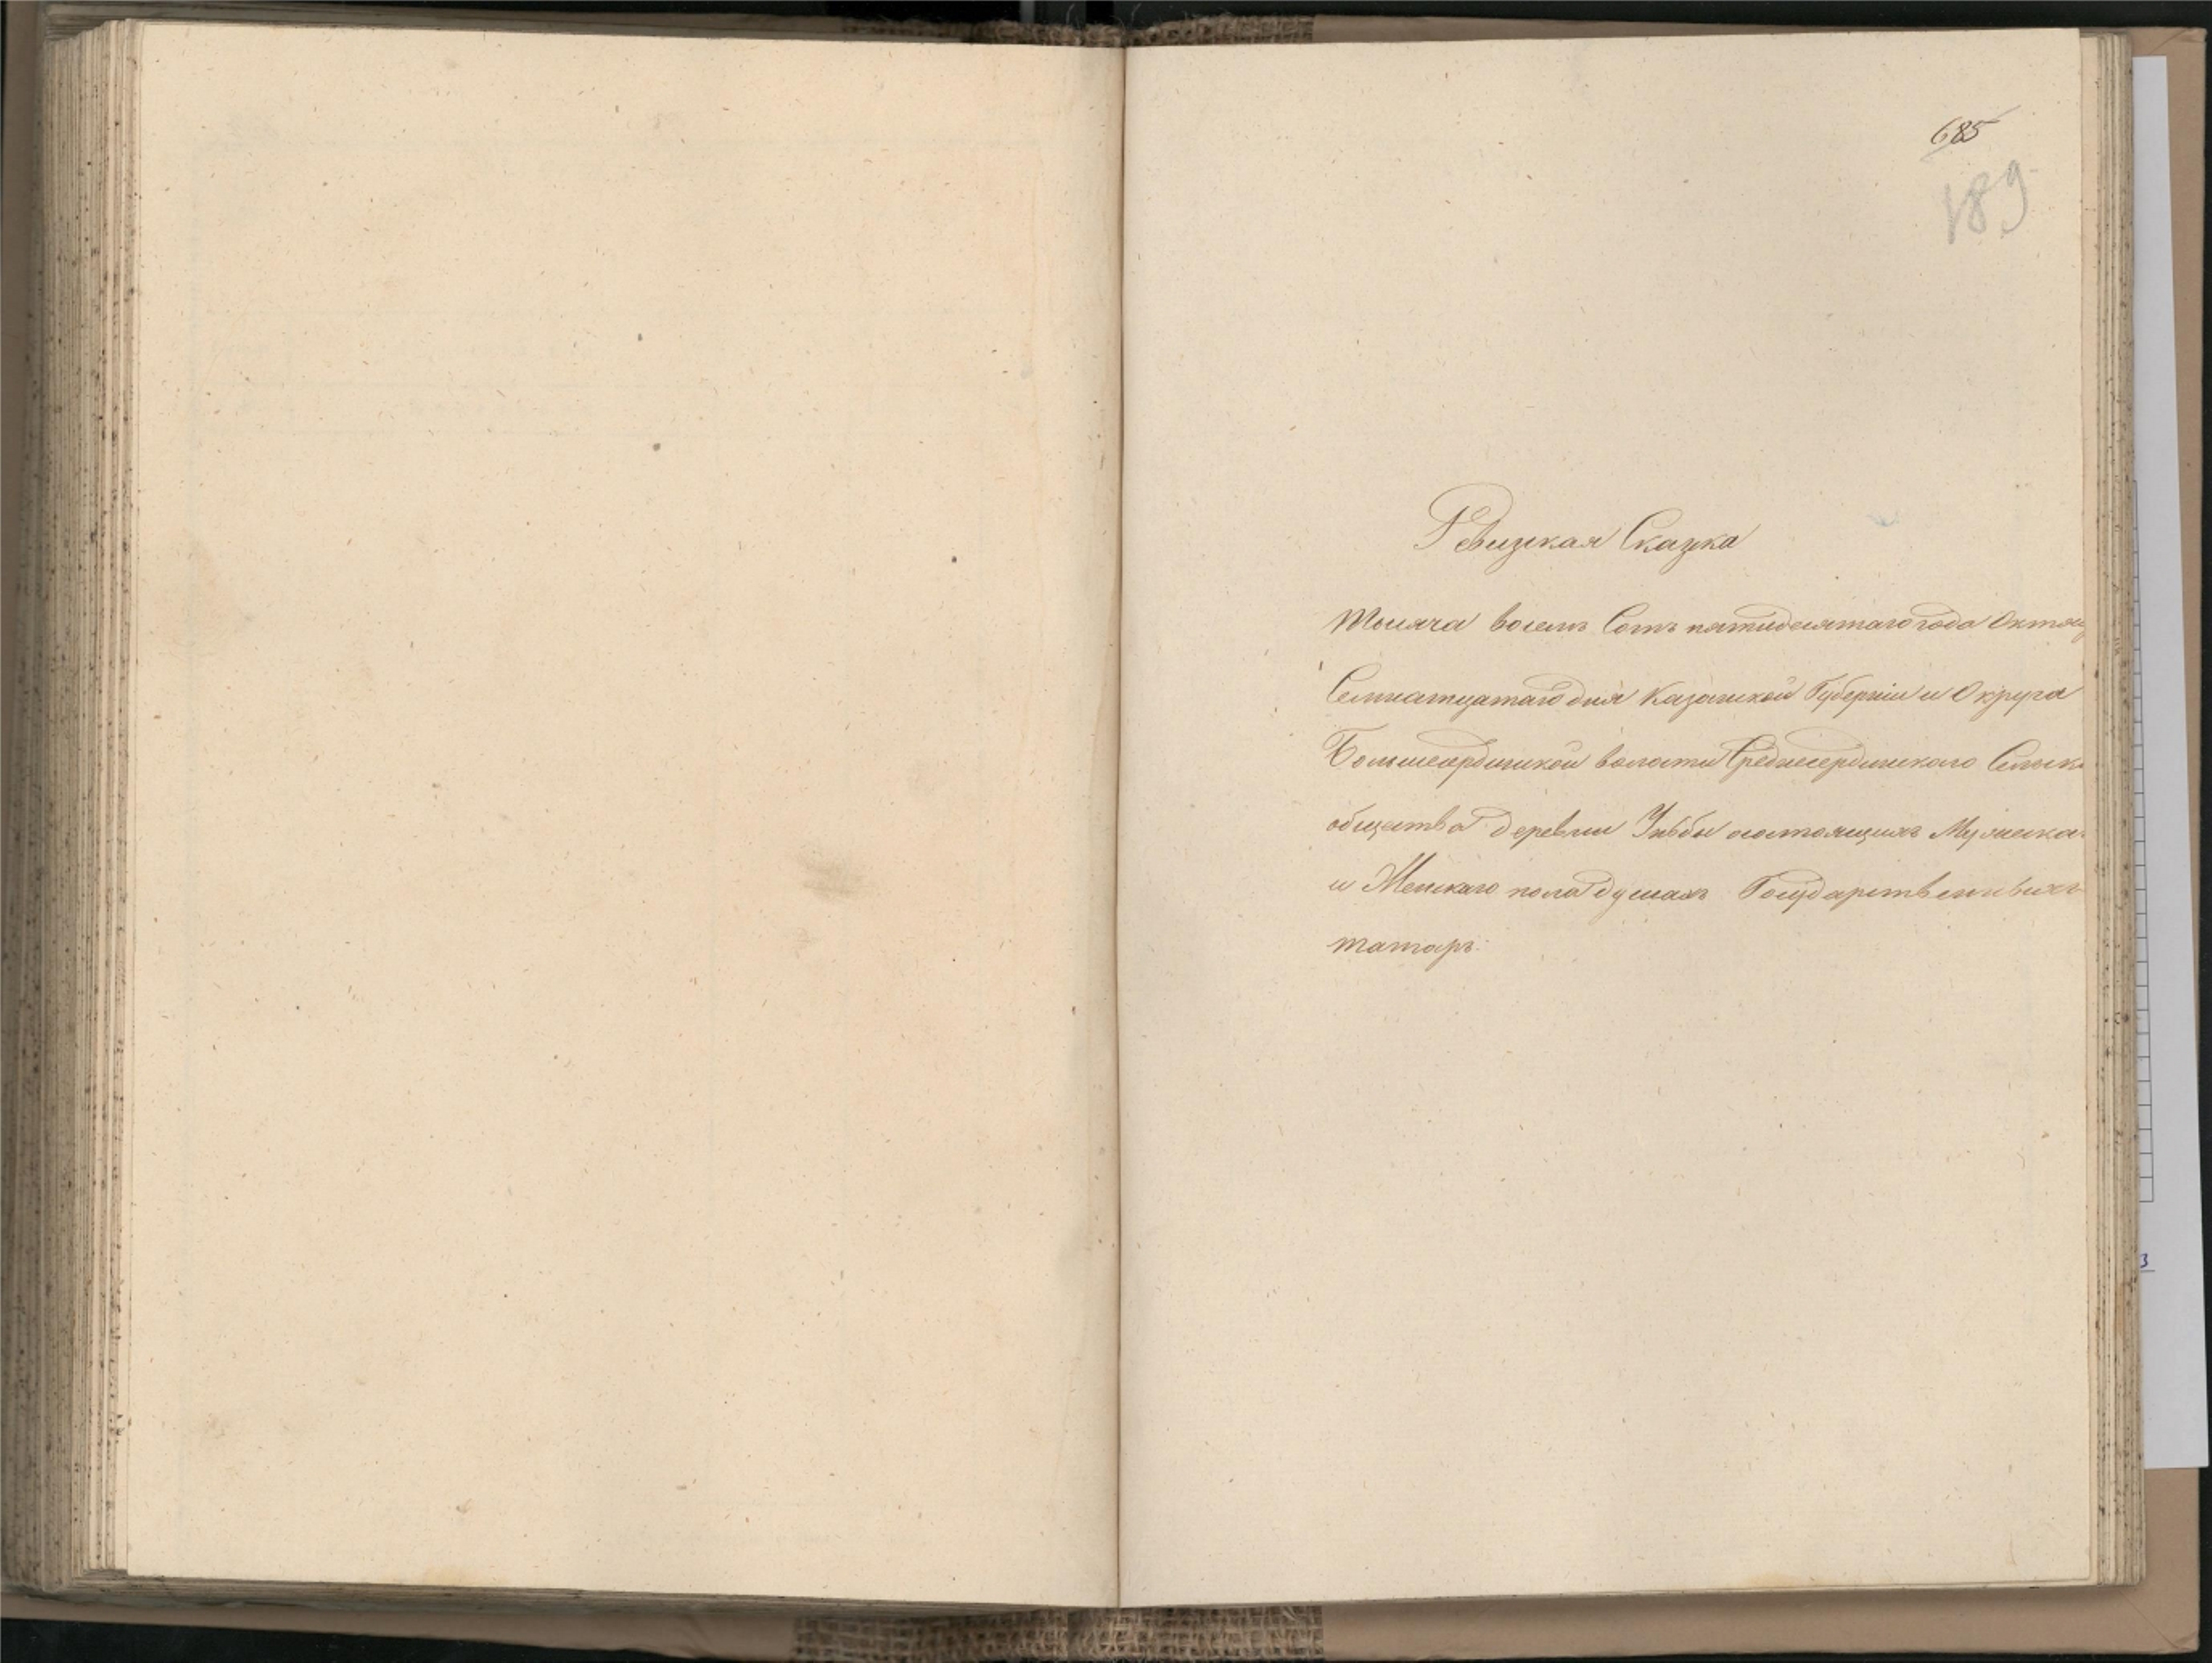 685
189
Ревизкая Сказка
Тысяча восемь Сотъ пятидесятаго года Октяб
Семнатцатаго дня Казанской Губерніи и Округа
Большесердинской волости Среднесердинскаго Сельск
общества деревни состоящихъ Мужеска
и Женскаго пола душахъ Государственныхъ
татаръ.
3